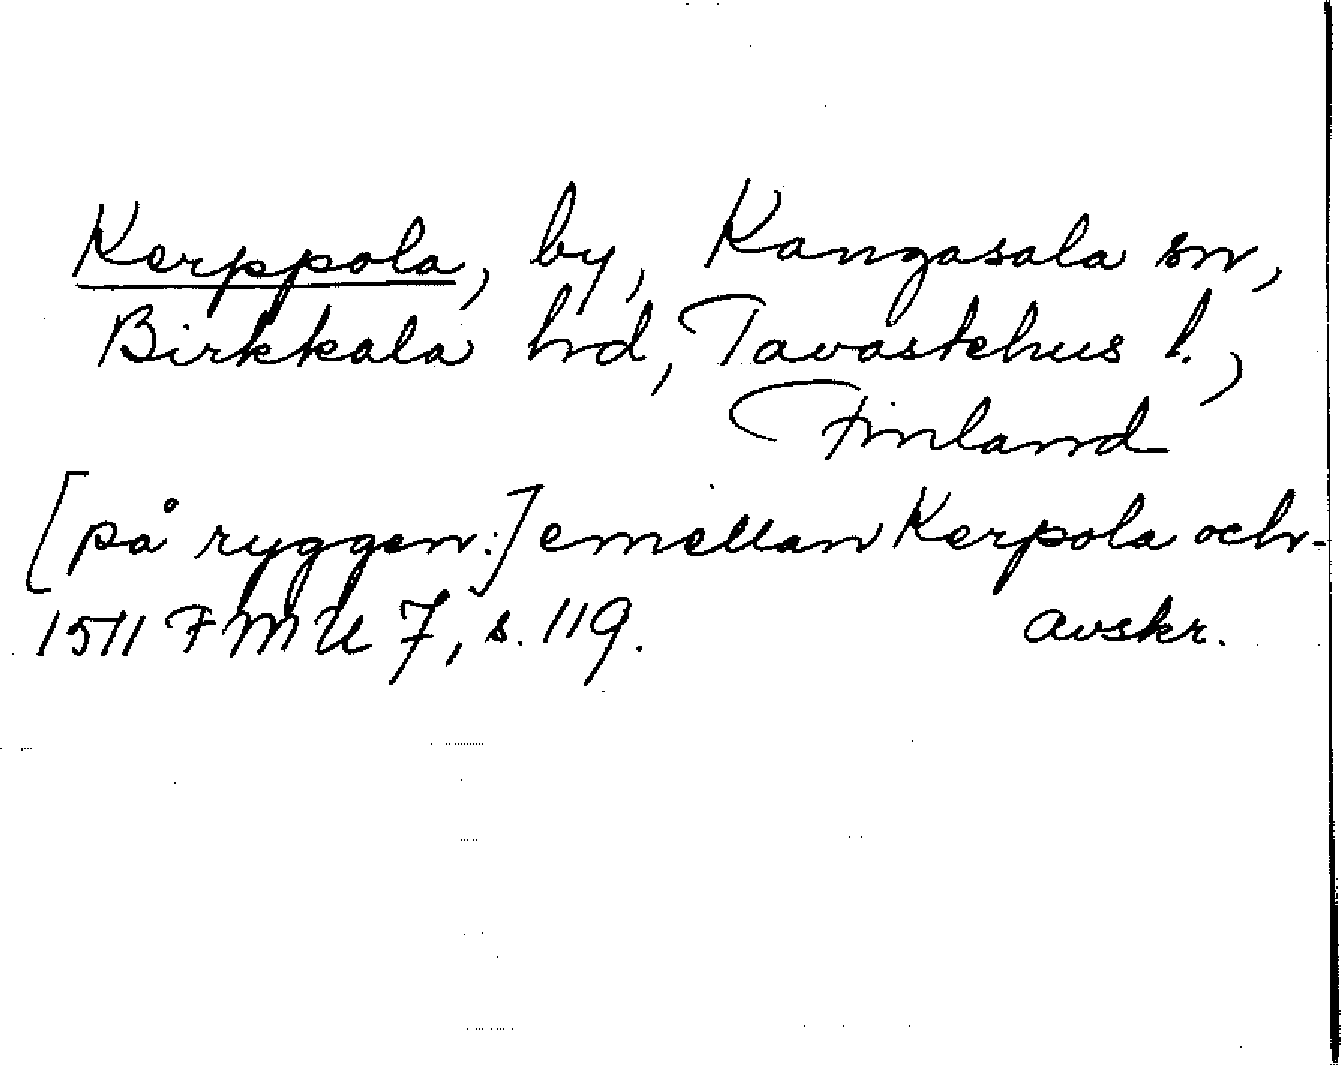 Kerppola, by, Kangasala sn,
Birkkala hrd, Tavastehus l.,
Finland
[på ryggen:] emellan Kerpola och-
1511 FMU 7, s. 119. avskr.